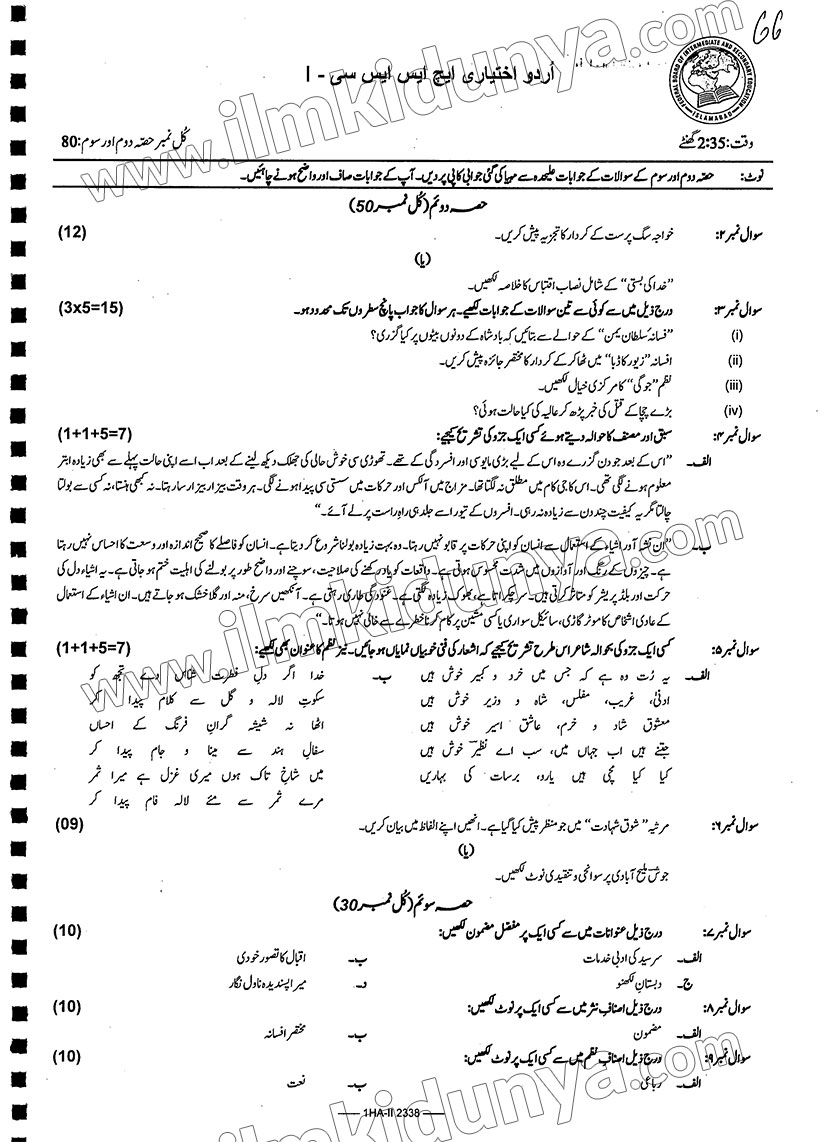 www.ilmkidunya.com
66
FEDERAL BOARD OF INTERMEDIATE AND SECONDARY EDUCATION ISLAMABAD
اُردو اختیاری ایچ ایس ایس سی - I
وقت: 2:35 گھنٹے
کُل نمبر حصّہ دوم اور سوم: 80
نوٹ: حصّہ دوم اور سوم کے سوالات کے جوابات علیحدہ سے مہیا کی گئی جوابی کاپی پر دیں۔ آپ کے جوابات صاف اور واضح ہونے چاہئیں۔
حصہ دوئم (کُل نمبر 50)
سوال نمبر ۲: خواجہ سگ پرست کے کردار کا تجزیہ پیش کریں۔ (12)
(یا)
”خدا کی بستی“ کے شامل نصاب اقتباس کا خلاصہ لکھیں۔
سوال نمبر ۳: درج ذیل میں سے کوئی سے تین سوالات کے جوابات لکھیے۔ ہر سوال کا جواب پانچ سطروں تک محدود ہو۔ (3x5=15)
(i) ”فسانہ سُلطان یمن“ کے حوالے سے بتائیں کہ بادشاہ کے دونوں بیٹوں پر کیا گزری؟
(ii) افسانہ ”زیور کا ڈبا“ میں ٹھاکر کے کردار کا مختصر جائزہ پیش کریں۔
(iii) نظم ”جوگی“ کا مرکزی خیال لکھیں۔
(iv) بڑے چچا کے قتل کی خبر پڑھ کر عالیہ کی کیا حالت ہوئی؟
سوال نمبر ۴: سبق اور مصنف کا حوالہ دیتے ہوئے کسی ایک جزو کی تشریح کیجیے: (1+1+5=7)
الف۔ ”اس کے بعد جو دن گزرے وہ اس کے لیے بڑی مایوسی اور افسردگی کے تھے۔ تھوڑی سی خوش حالی کی جھلک دیکھ لینے کے بعد اب اسے اپنی حالت پہلے سے بھی زیادہ ابتر
معلوم ہونے لگی تھی۔ اس کا جی کام میں مطلق نہ لگتا تھا۔ مزاج میں آلکس اور حرکات میں سستی سی پیدا ہونے لگی۔ ہر وقت بیزار بیزار سا رہتا۔ نہ کبھی ہنستا، نہ کسی سے بولتا
چالتا مگر یہ کیفیت چند دن سے زیادہ نہ رہی۔ افسروں کے تیور اسے جلد ہی راہِ راست پر لے آئے۔“
ب۔ ”ان نشہ آور اشیاء کے استعمال سے انسان کو اپنی حرکات پر قابو نہیں رہتا۔ وہ بہت زیادہ بولنا شروع کر دیتا ہے۔ انسان کو فاصلے کا صحیح اندازہ اور وسعت کا احساس نہیں رہتا
ہے۔ چیزوں کے رنگ اور آوازوں میں شدت محسوس ہوتی ہے۔ واقعات کو یاد رکھنے کی صلاحیت، سوچنے اور واضح طور پر بولنے کی اہلیت ختم ہو جاتی ہے۔ یہ اشیاء دل کی
حرکت اور بلڈ پریشر کو متاثر کرتی ہیں۔ سر چکراتا ہے، بھوک زیادہ لگتی ہے۔ غنودگی طاری رہتی ہے۔ آنکھیں سرخ، منہ اور گلا خشک ہو جاتے ہیں۔ ان اشیاء کے استعمال
کے عادی اشخاص کا موٹر گاڑی، سائیکل سواری یا کسی مشین پر کام کرنا خطرے سے خالی نہیں ہوتا۔“
سوال نمبر ۵: کسی ایک جزو کی بحوالہ شاعر اس طرح تشریح کیجیے کہ اشعار کی فنی خوبیاں نمایاں ہو جائیں۔ نیز نظم کا عنوان بھی لکھیے: (1+1+5=7)
الف۔ یہ رُت وہ ہے کہ جس میں خرد و کبیر خوش ہیں
ادنیٰ، غریب، مفلس، شاہ و وزیر خوش ہیں
معشوق شاد و خرم، عاشق اسیر خوش ہیں
جتنے ہیں اب جہاں میں، سب اے نظیر خوش ہیں
کیا کیا مچی ہیں یارو، برسات کی بہاریں
ب۔ خدا اگر دلِ فطرت شناس دے تجھ کو
سکوتِ لالہ و گل سے کلام پیدا کر
اٹھا نہ شیشہ گرانِ فرنگ کے احساں
سفالِ ہند سے مینا و جام پیدا کر
میں شاخِ تاک ہوں میری غزل ہے میرا ثمر
مرے ثمر سے مئے لالہ فام پیدا کر
سوال نمبر ۶: مرثیہ ”شوق شہادت“ میں جو منظر پیش کیا گیا ہے۔ انھیں اپنے الفاظ میں بیان کریں۔ (09)
(یا)
جوش ملیح آبادی پر سوانحی و تنقیدی نوٹ لکھیں۔
حصہ سوئم (کُل نمبر 30)
سوال نمبر ۷: درج ذیل عنوانات میں سے کسی ایک پر مفصل مضمون لکھیں: (10)
الف۔ سرسید کی ادبی خدمات ب۔ اقبال کا تصور خودی
ج۔ دبستانِ لکھنو د۔ میرا پسندیدہ ناول نگار
سوال نمبر ۸: درج ذیل اصنافِ نثر میں سے کسی ایک پر نوٹ لکھیں: (10)
الف۔ مضمون ب۔ مختصر افسانہ
سوال نمبر ۹: درج ذیل اصنافِ نظم میں سے کسی ایک پر نوٹ لکھیں: (10)
الف۔ رباعی ب۔ نعت
—— 1HA-II 2338 ——